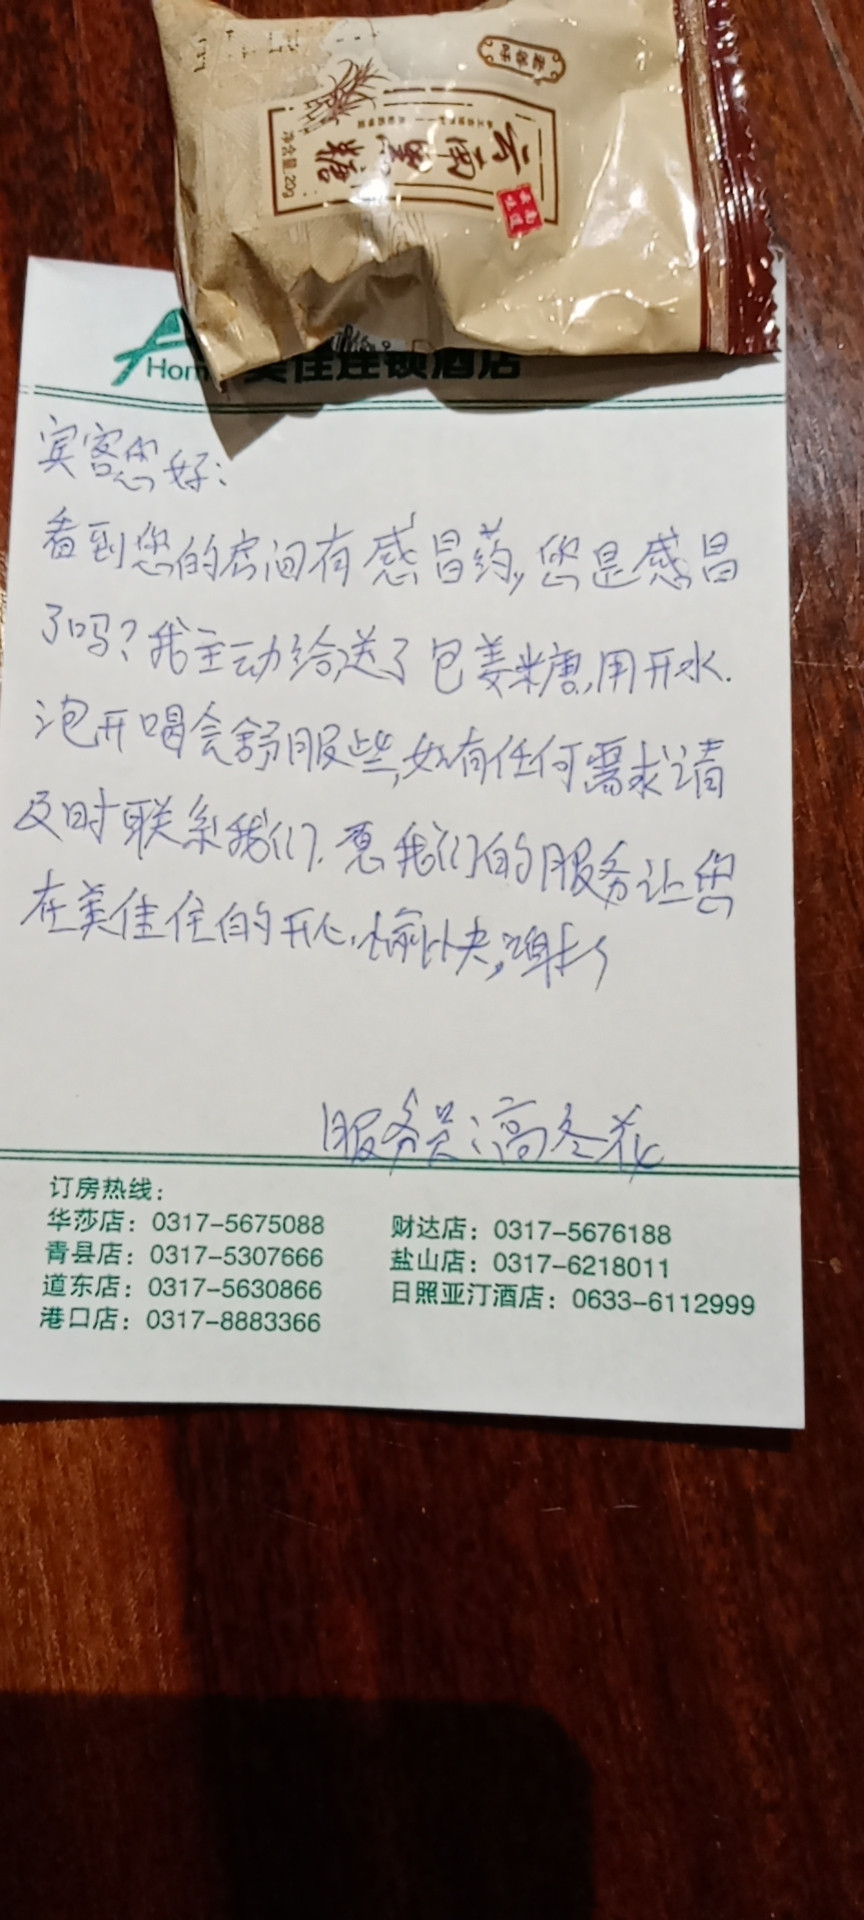 云南黑糖
净含量:20g
Hom
美佳连锁酒店
宾客您好:
看到您的房间有感冒药,您是感冒
了吗?我主动给送了包姜糖,用开水.
泡开喝会舒服些,如有任何需求请
及时联系我们.愿我们的服务让您
在美佳住的开心.愉快,谢谢
服务员:高冬花
订房热线:
华莎店:0317-5675088
财达店:0317-5676188
青县店:0317-5307666
盐山店:0317-6218011
道东店:0317-5630866
日照亚汀酒店:0633-6112999
港口店:0317-8883366